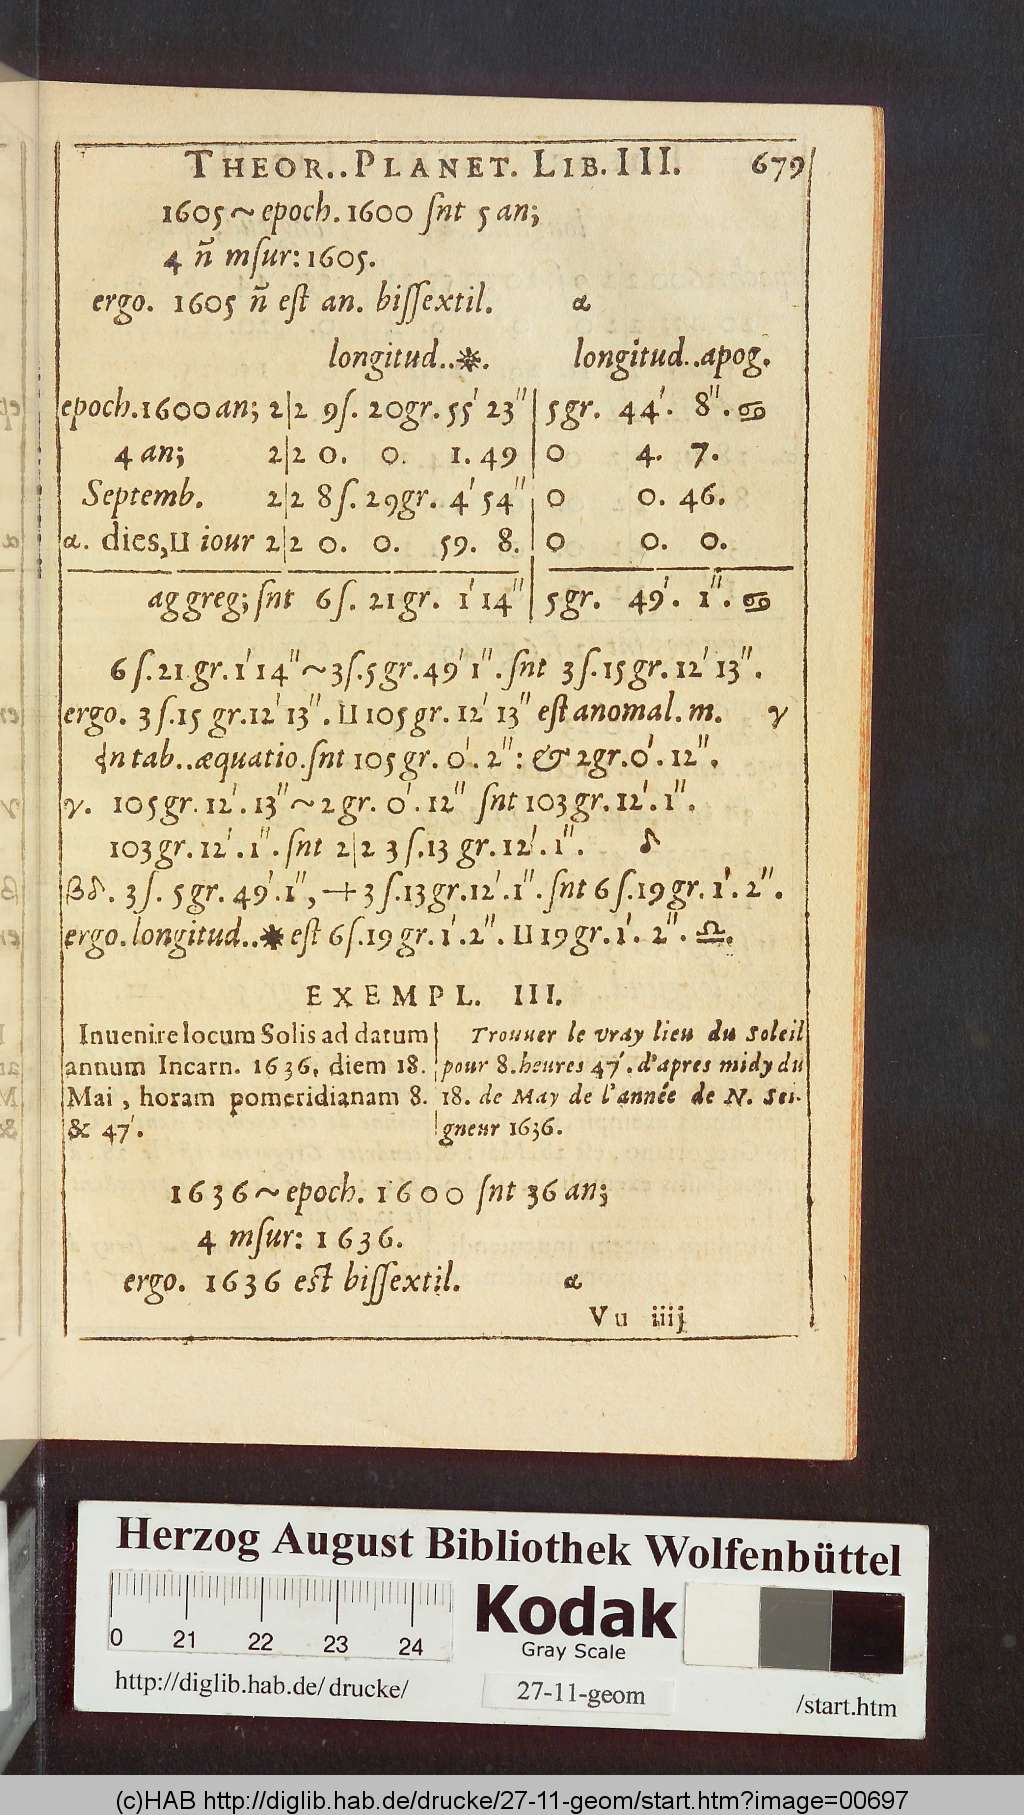 THEOR.. PLANET. LIB. III. 679
1605 ~ epoch. 1600 ſnt 5 an;
4 ñ mſur: 1605.
ergo. 1605 ñ eſt an. biſſextil. α
longitud..☀. longitud..apog.
epoch. 1600 an; 2|2 9ſ. 20gr. 55′ 23″ | 5gr. 44′. 8″. ♋
4 an; 2|2 0. 0. 1. 49 | 0 4. 7.
Septemb. 2|2 8ſ. 29gr. 4′ 54″ | 0 0. 46.
α. dies, II iour 2|2 0. 0. 59. 8. | 0 0. 0.
aggreg; ſnt 6ſ. 21gr. 1′ 14″ | 5gr. 49′. 1″. ♋
6ſ. 21 gr. 1′ 14″ ~ 3ſ. 5gr. 49′ 1″. ſnt 3ſ. 15gr. 12′ 13″.
ergo. 3ſ. 15 gr. 12′ 13″. II 105gr. 12′ 13″ eſt anomal. m. γ
In tab..æquatio. ſnt 105gr. 0′. 2″: & 2gr. 0′. 12″.
γ. 105gr. 12′. 13″ ~ 2gr. 0′. 12″ ſnt 103gr. 12′. 1″.
103gr. 12′. 1″. ſnt 2|2 3ſ. 13 gr. 12′. 1″. δ
βδ. 3ſ. 5gr. 49′. 1″, + 3ſ. 13gr. 12′. 1″. ſnt 6ſ. 19gr. 1′. 2″.
ergo. longitud..☀ eſt 6ſ. 19gr. 1′. 2″. II 19gr. 1′. 2″. ♎.
EXEMPL. III.
Inuenire locum Solis ad datum
annum Incarn. 1636, diem 18.
Mai, horam pomeridianam 8.
& 47′.
Trouuer le vray lieu du Soleil
pour 8. heures 47′. d'apres midy du
18. de May de l'année de N. Sei-
gneur 1636.
1636 ~ epoch. 1600 ſnt 36 an;
4 mſur: 1636.
ergo. 1636 eſt biſſextil. α
Vu iiij
Herzog August Bibliothek Wolfenbüttel
0 21 22 23 24
Kodak
Gray Scale
http://diglib.hab.de/ drucke/ 27-11-geom /start.htm
(c)HAB http://diglib.hab.de/drucke/27-11-geom/start.htm?image=00697